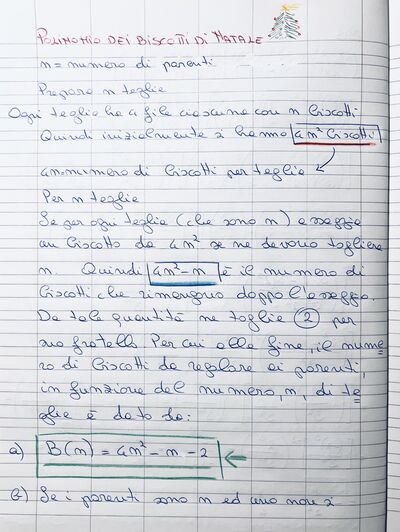 POLINOMIO DEI BISCOTTI DI NATALE
n = numero di parenti
Preparo n teglie
Ogni teglia ha 4 file ciascuna con n biscotti
Quindi inizialmente si hanno 4n² biscotti
4n = numero di biscotti per teglia
Per n teglie
Se per ogni teglia (che sono n) assaggia
un biscotto da 4n² se ne devono togliere
n. Quindi 4n² - n è il numero di
biscotti che rimangono doppo l'assaggio.
Da tale quantità ne toglie 2 per
suo fratello. Per cui alla fine, il nume
ro di biscotti da regalare ai parenti,
in funzione del numero, n, di te
glie è dato da:
a) B(n) = 4n² - n - 2
b) Se i parenti sono n ed uno non si